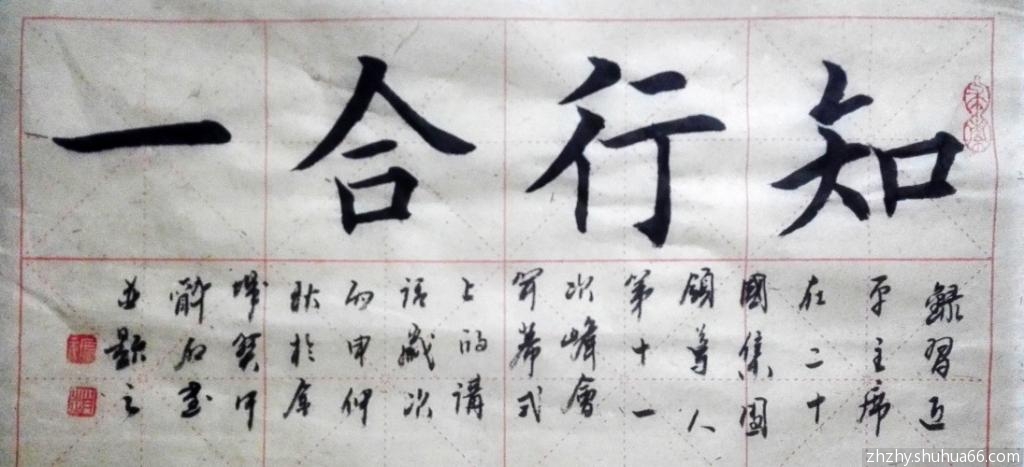 知行合一
錄習近
平主席
在二十
國集團
領導人
第十一
次峰會
開幕式
上的講
話歲次
丙申仲
秋於
甲
並題之
zhzhy.shuhua66.com